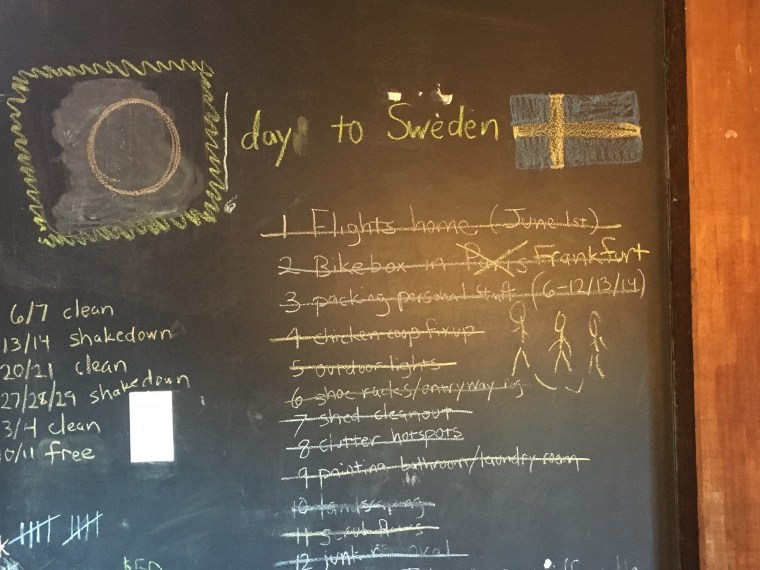 0 day to Sweden
1 Flights home (June 1st)
2 Bikebox in Paris Frankfurt
3 packing personal stuff (6-12/13/14)
4 chicken coop fixup
5 outdoor lights
6 shoe racks/entryway
7 shed cleanout
8 clutter hotspots
9 painting bathroom/laundry room
10 landscaping
11
12 junk removal
6/7 clean
13/14 shakedown
20/21 clean
27/28/29 shakedown
3/4 clean
10/11 free
$50